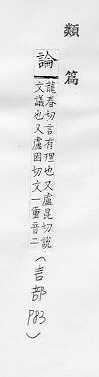 類篇
論
龍春切言有理也又盧昆切說
文議也又盧困切文一重音二
(言部 P83)